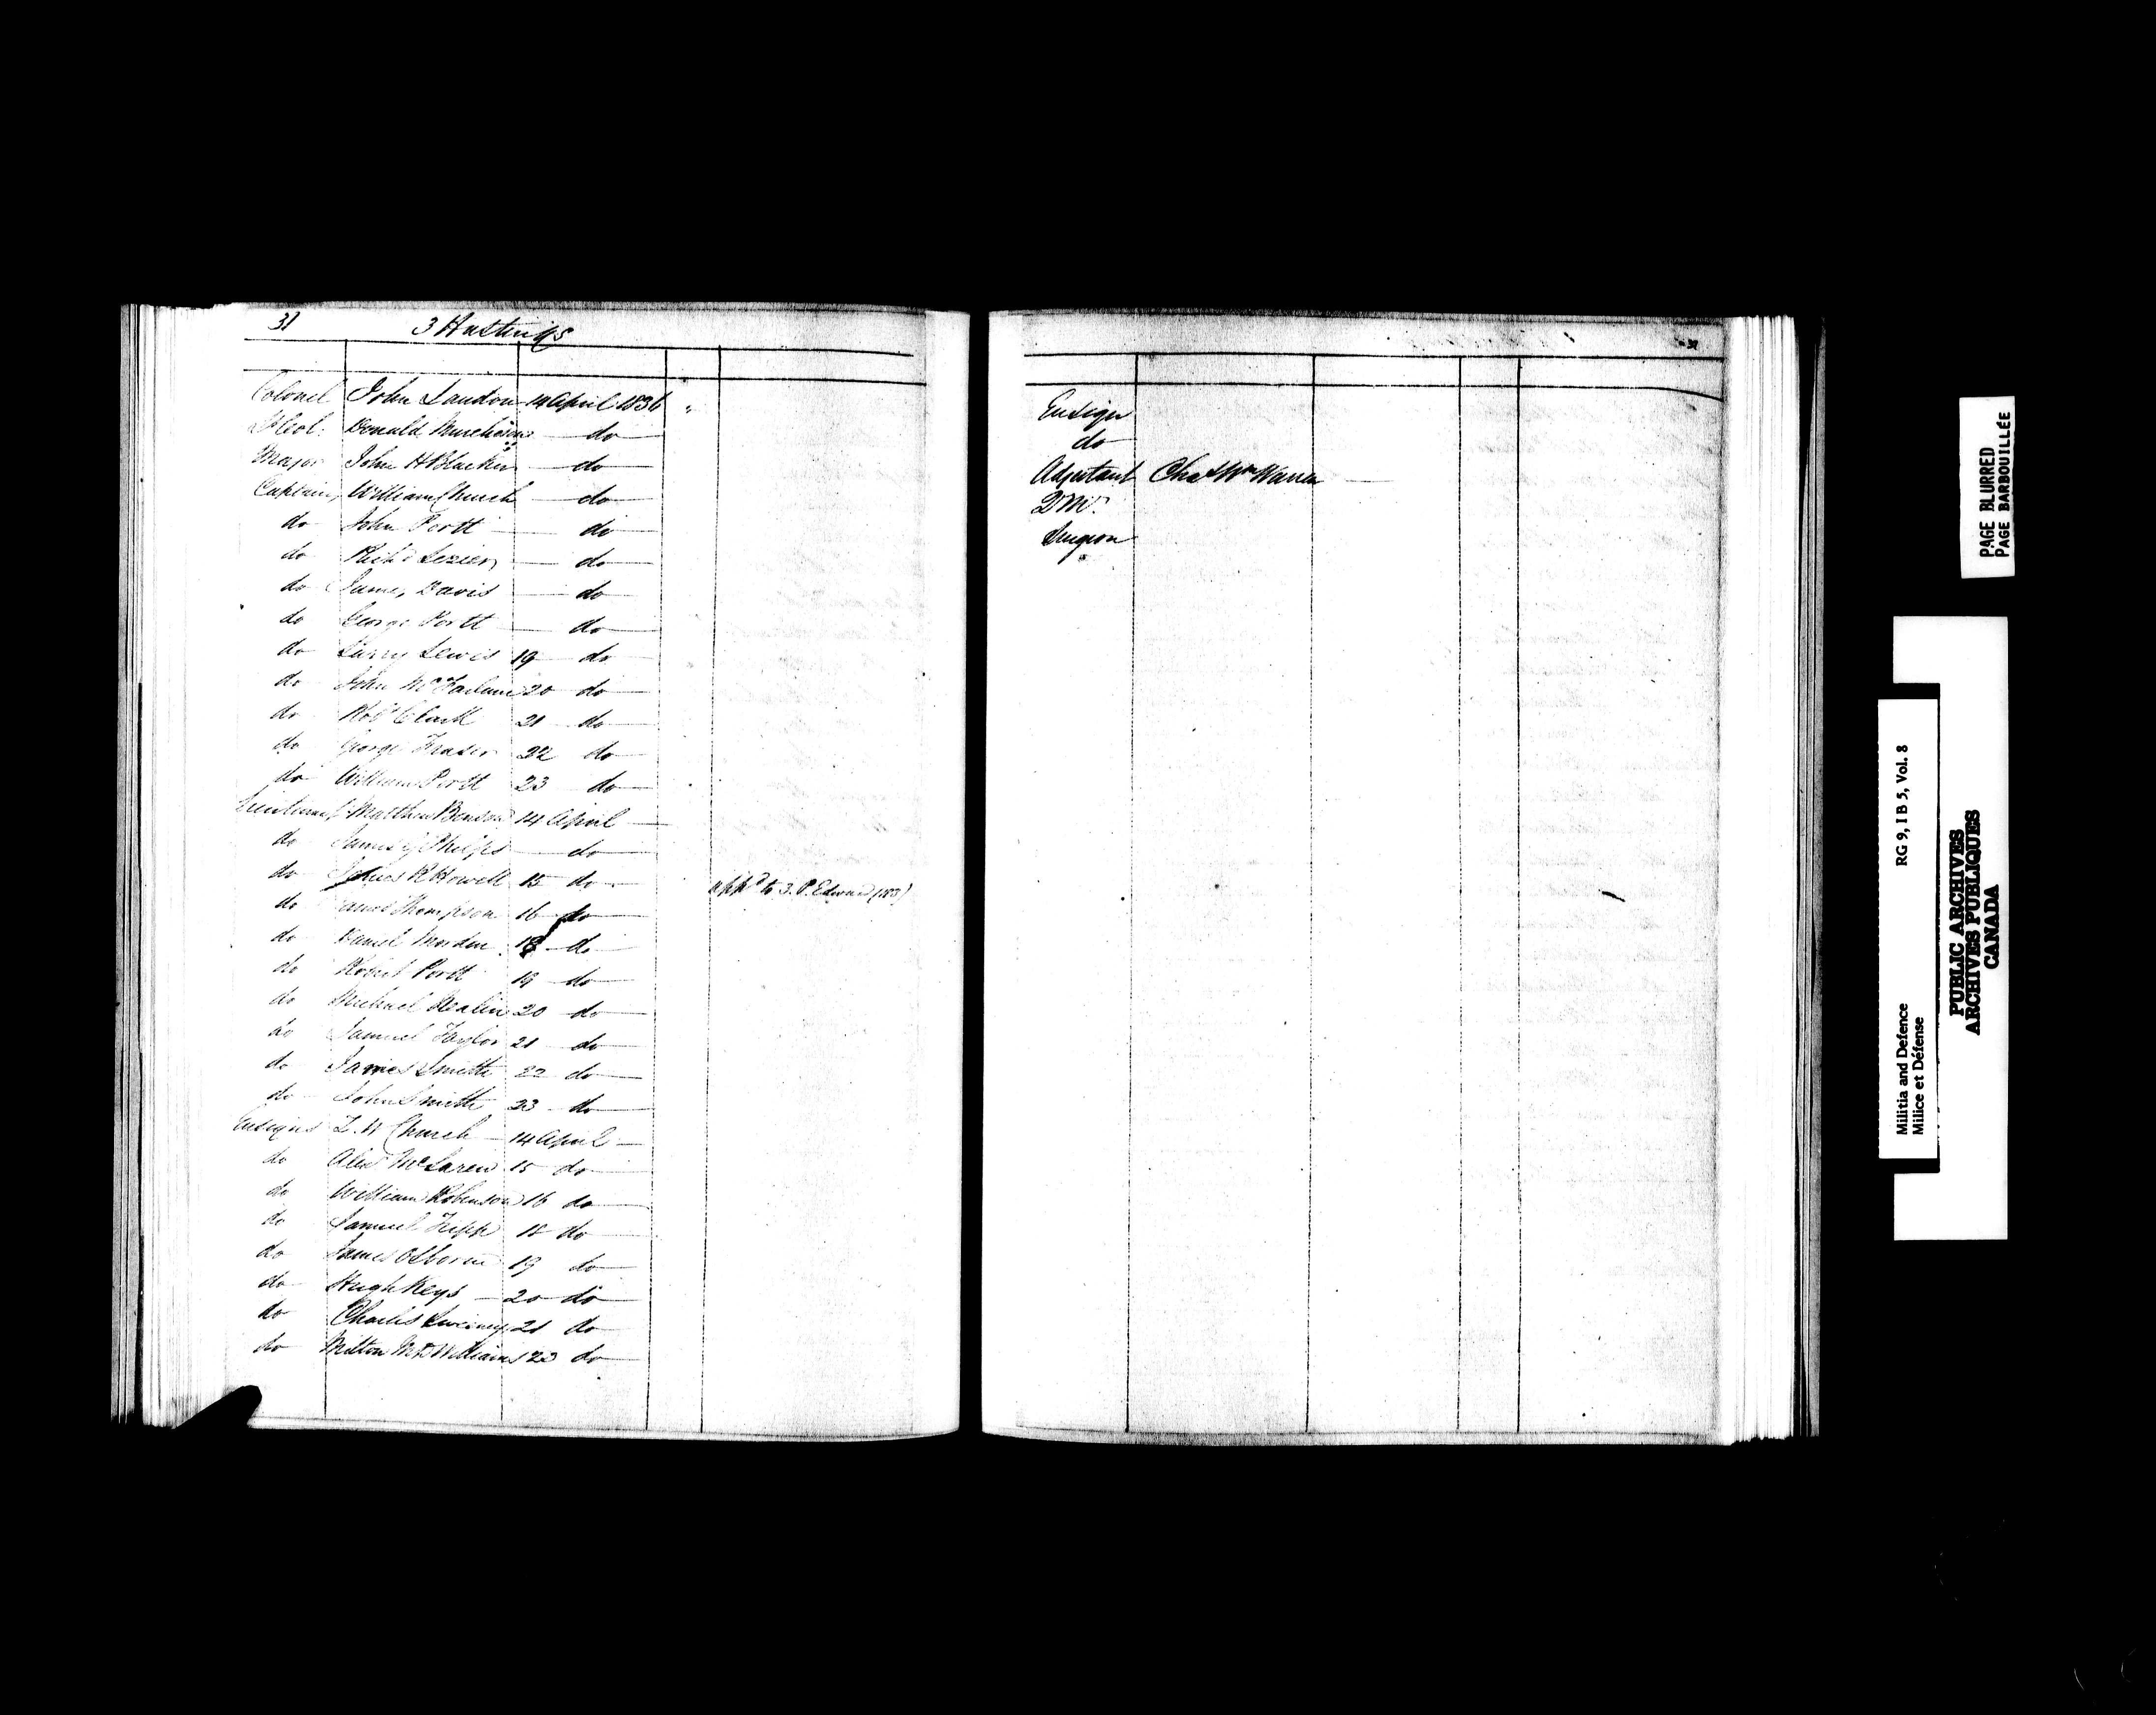 31 3 Hastings
Colonel John Landon 14 April 1836 "
Lt Col. Donald Murchison do
Major John H Blacker do
Captain, William Church do
do John Portt do
do Rich'd Lezier do
do James Davis do
do George Portt do
do Larry Lewis 19 do
do John McFarlane 20 do
do Robt Clark 21 do
do George Fraser 22 do
do William Portt 23 do
Lieutenant Matthew Benson 14 April
do James Phelps do
do James R Howell 15 do appd to 3. P. Edward (183)
do James Thompson 16 do
do Daniel Morden 18 do
do Robert Portt 19 do
do Michael Nealin 20 do
do Samuel Taylor 21 do
do James Smith 22 do
do John Smith 23 do
Ensigns Church 14 April
do Alexr McLaren 15 do
do William Robinson 16 do
do Samuel Tripp 18 do
do James Osborne 19 do
do Hugh Keys 20 do
do Charles Sweeney 21 do
do Milton McWilliams 22 do
Ensign
do
Adjutant Chas Wm Warren
Q M.
Surgeon
PAGE BLURRED
PAGE BARBOUILLÉE
Militia and Defence RG 9, I B 5, Vol. 8
Milice et Défense
PUBLIC ARCHIVES
ARCHIVES PUBLIQUES
CANADA